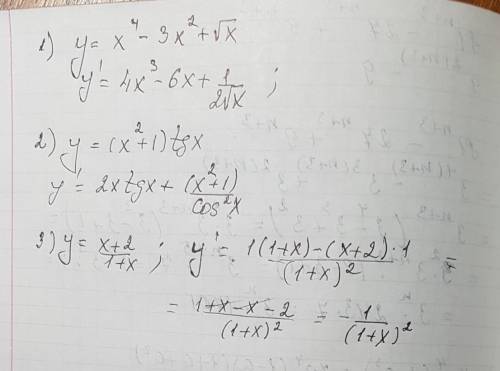 1) y = x⁴ - 3x² + √x
y' = 4x³ - 6x + 1/(2√x) ;
2) y = (x² + 1) tgx
y' = 2x tgx + (x² + 1)/cos²x
3) y = (x+2)/(1+x) ; y' = (1(1+x) - (x+2)·1)/(1+x)² =
= (1+x-x-2)/(1+x)² = - 1/(1+x)²